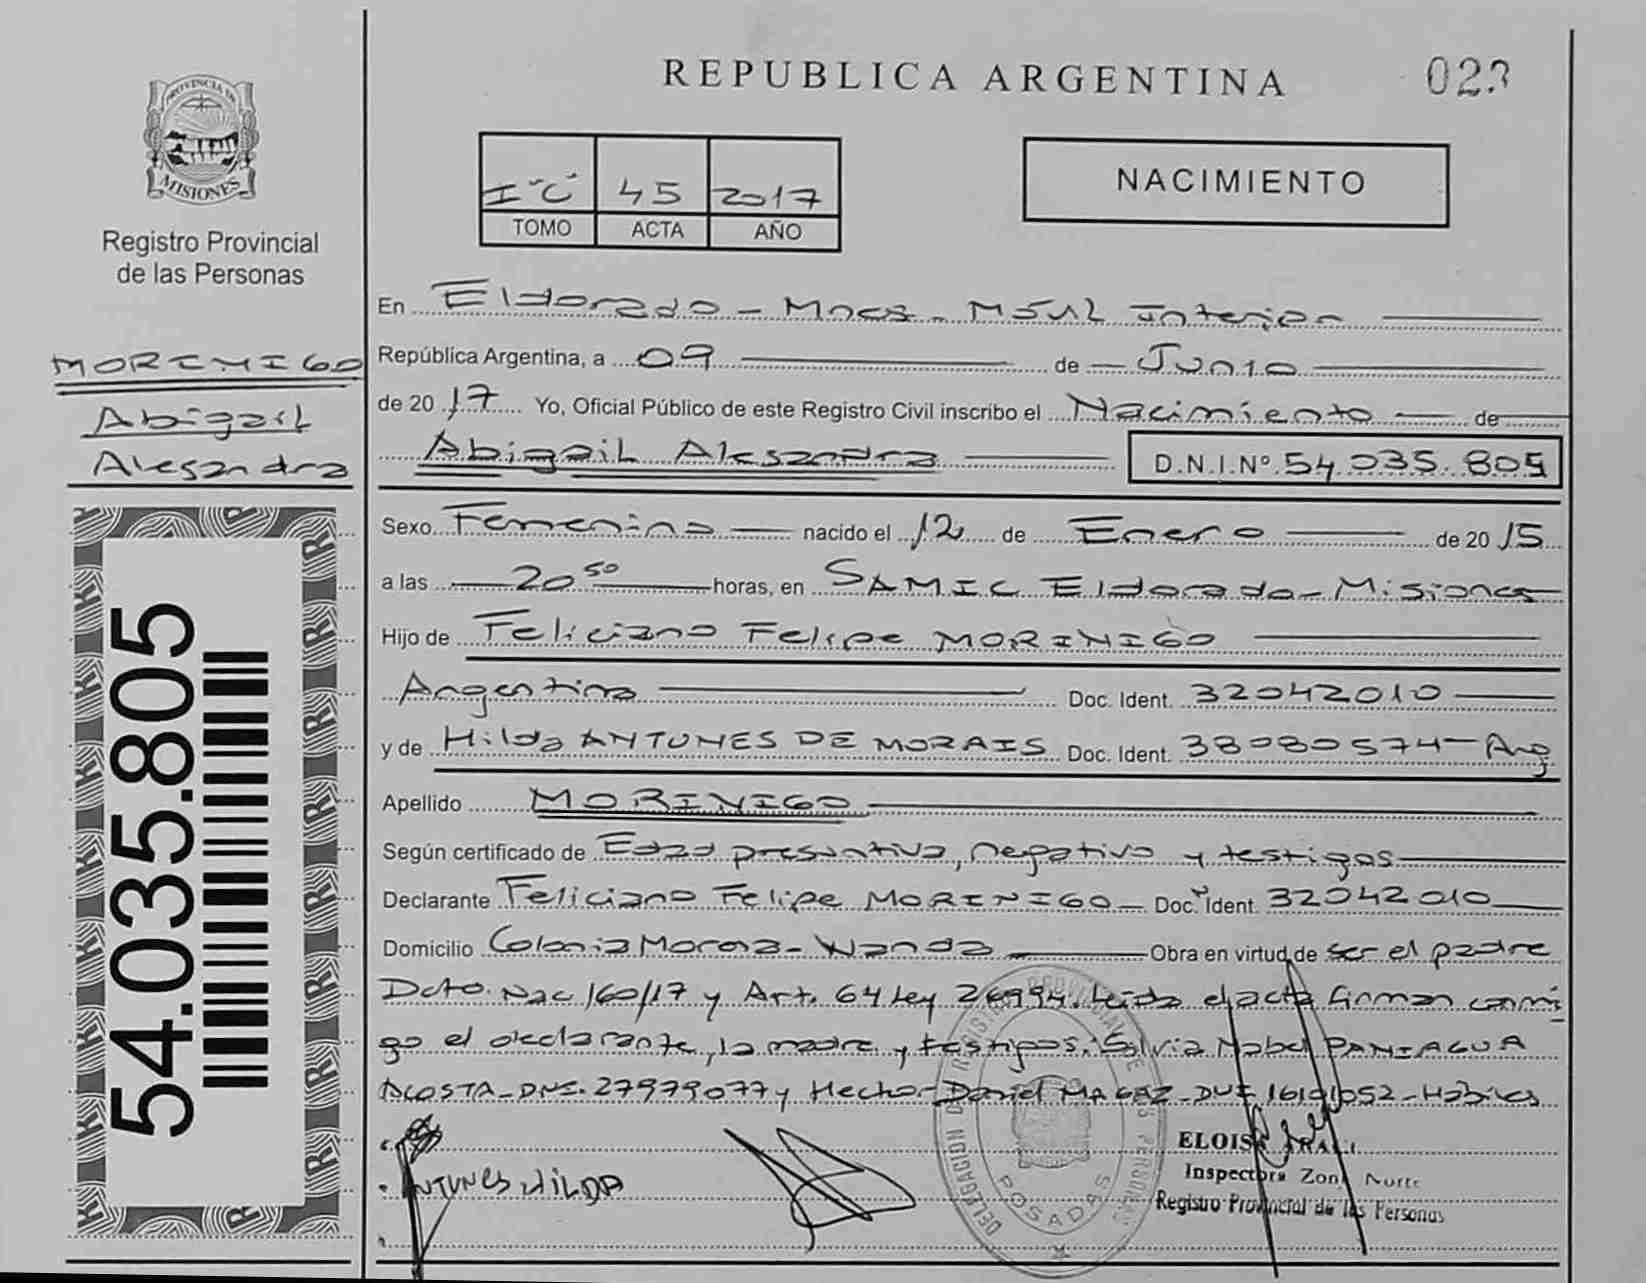 REPUBLICA ARGENTINA
023
PROVINCIA DE
MISIONES
Registro Provincial
de las Personas
I "C" 45 2017
TOMO ACTA AÑO
NACIMIENTO
MORINIGO
Abigail
Alesandra
54.035.805
En Eldorado - Mnes - Interior
República Argentina, a 09 de Junio
de 2017 Yo, Oficial Público de este Registro Civil inscribo el Nacimiento de
Abigail Alesandra D.N.I.Nº 54.035.805
Sexo Femenino nacido el 12 de Enero de 2015
a las 20 50 horas, en SAMIC Eldorado - Misiones
Hijo de Feliciano Felipe MORINIGO
Argentina Doc. Ident. 32042010
y de Hilda ANTUNES DE MORAIS Doc. Ident. 38080574 - Arg
Apellido MORINIGO
Según certificado de Edad presuntiva, negativo y testigos
Declarante Feliciano Felipe MORINIGO Doc. Ident. 32042010
Domicilio Colonia - Wanda Obra en virtud de ser el padre
Dcto. Nac 160/17 y Art. 64 Ley 26994. Leida el acta firman conmi
go el declarante, la madre y testigos. Silvia Mabel PANIAGUA
ACOSTA - DNI. 27979077 y Hector Daniel - DNI - Habiles
ANTUNES HILDA
DELEGACION POSADAS
ELOISA
Inspectora Zona Norte
Registro Provincial de las Personas